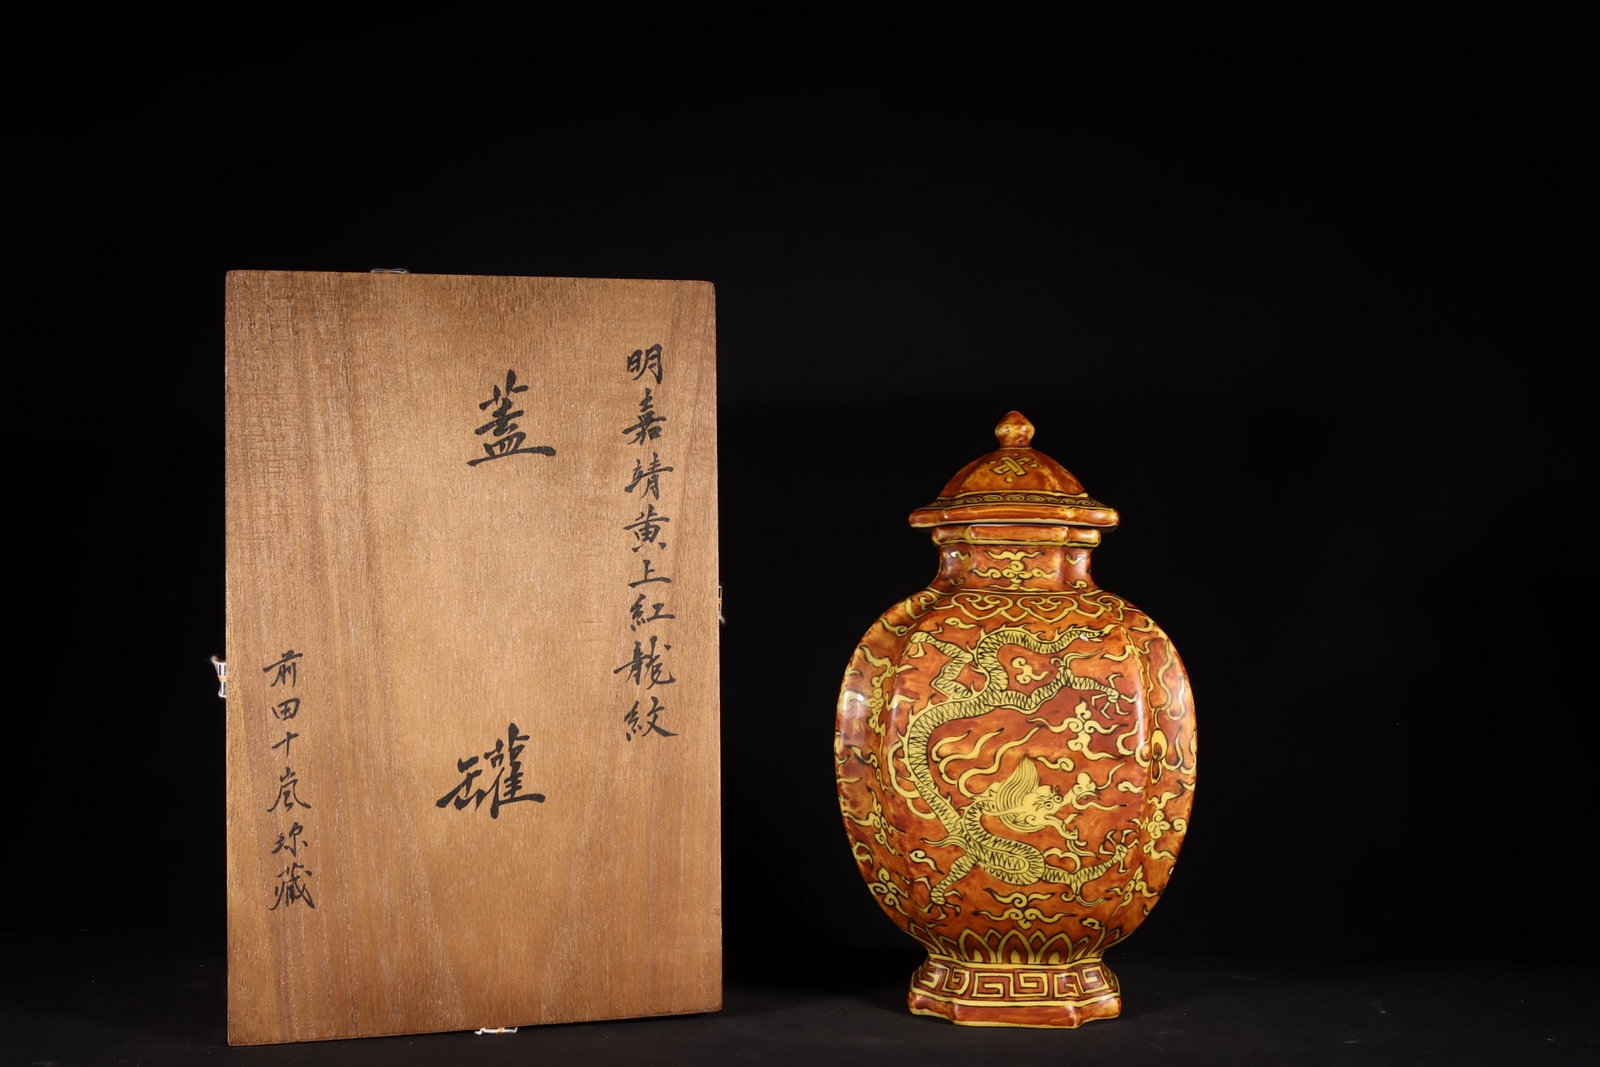 明嘉靖黄上紅龍紋
蓋罐
前田十嵐珎藏